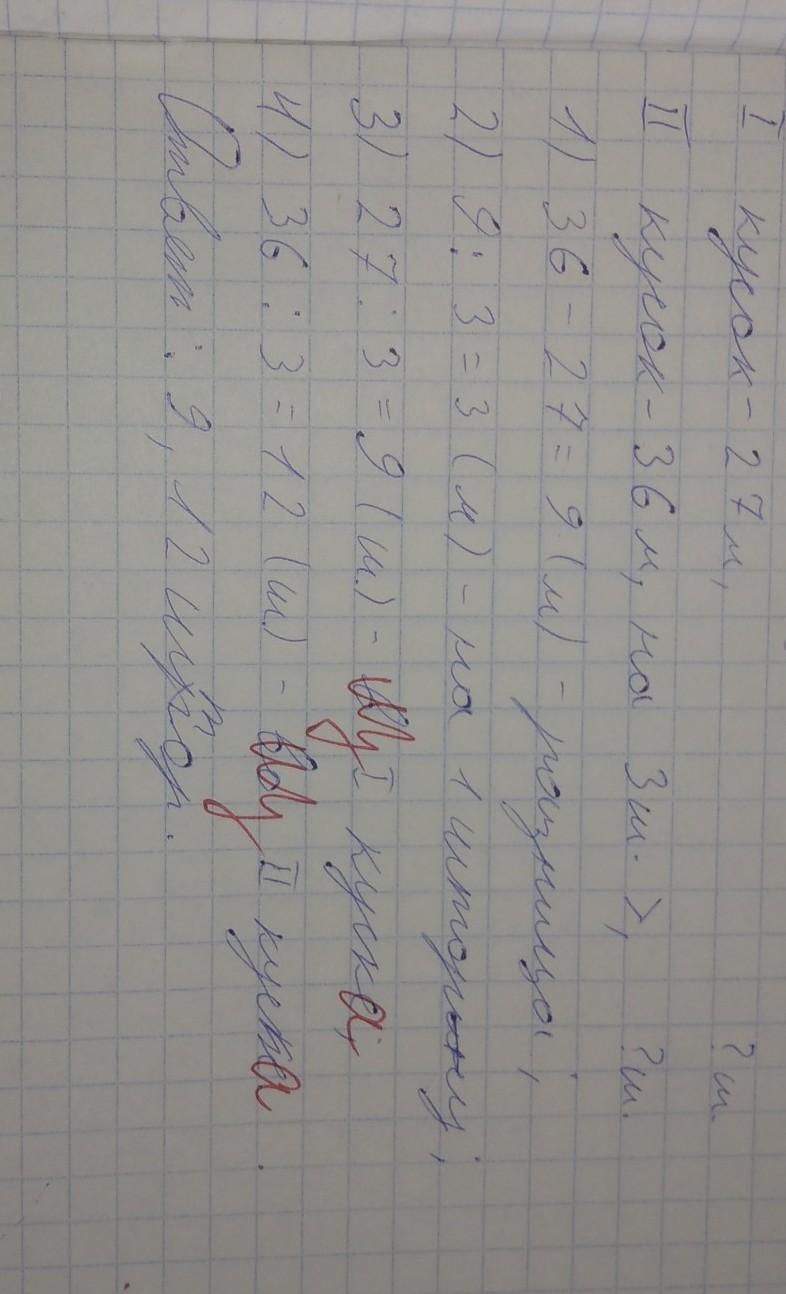 I кусок - 27 м, ? ш.
II кусок - 36 м, на 3 ш. >, ? ш.
1) 36 - 27 = 9 (м) - разница;
2) 9 : 3 = 3 (м) - на 1 штору;
3) 27 : 3 = 9 (ш.) - I куска;
4) 36 : 3 = 12 (ш.) - II куска.
Ответ: 9, 12 штор.